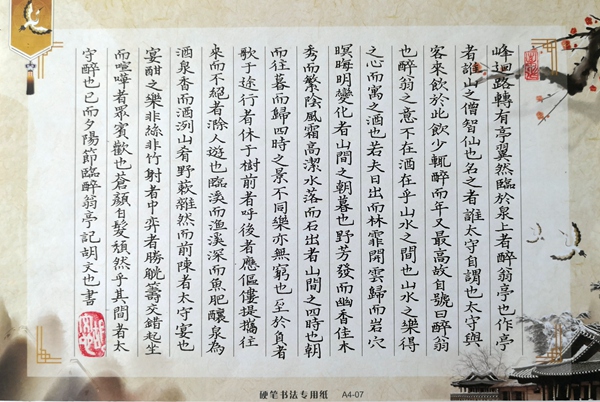 峰迴路轉有亭翼然臨於泉上者醉翁亭也作亭
者誰山之僧智仙也名之者誰太守自謂也太守與
客來飲於此飲少輒醉而年又最高故自號曰醉翁
也醉翁之意不在酒在乎山水之間也山水之樂得
之心而寓之酒也若夫日出而林霏開雲歸而岩穴
暝晦明變化者山間之朝暮也野芳發而幽香佳木
秀而繁陰風霜高潔水落而石出者山間之四時也朝
而往暮而歸四時之景不同樂亦無窮也至於負者
歌于途行者休于樹前者呼後者應傴僂提攜往
來而不絕者滁人遊也臨溪而漁溪深而魚肥釀泉為
酒泉香而酒洌山肴野蔌雜然而前陳者太守宴也
宴酣之樂非絲非竹射者中弈者勝觥籌交錯起坐
而喧嘩者眾賓歡也蒼顏白髮頹然乎其間者太
守醉也已而夕陽節臨醉翁亭記胡文也書
硬笔书法专用纸 A4-07